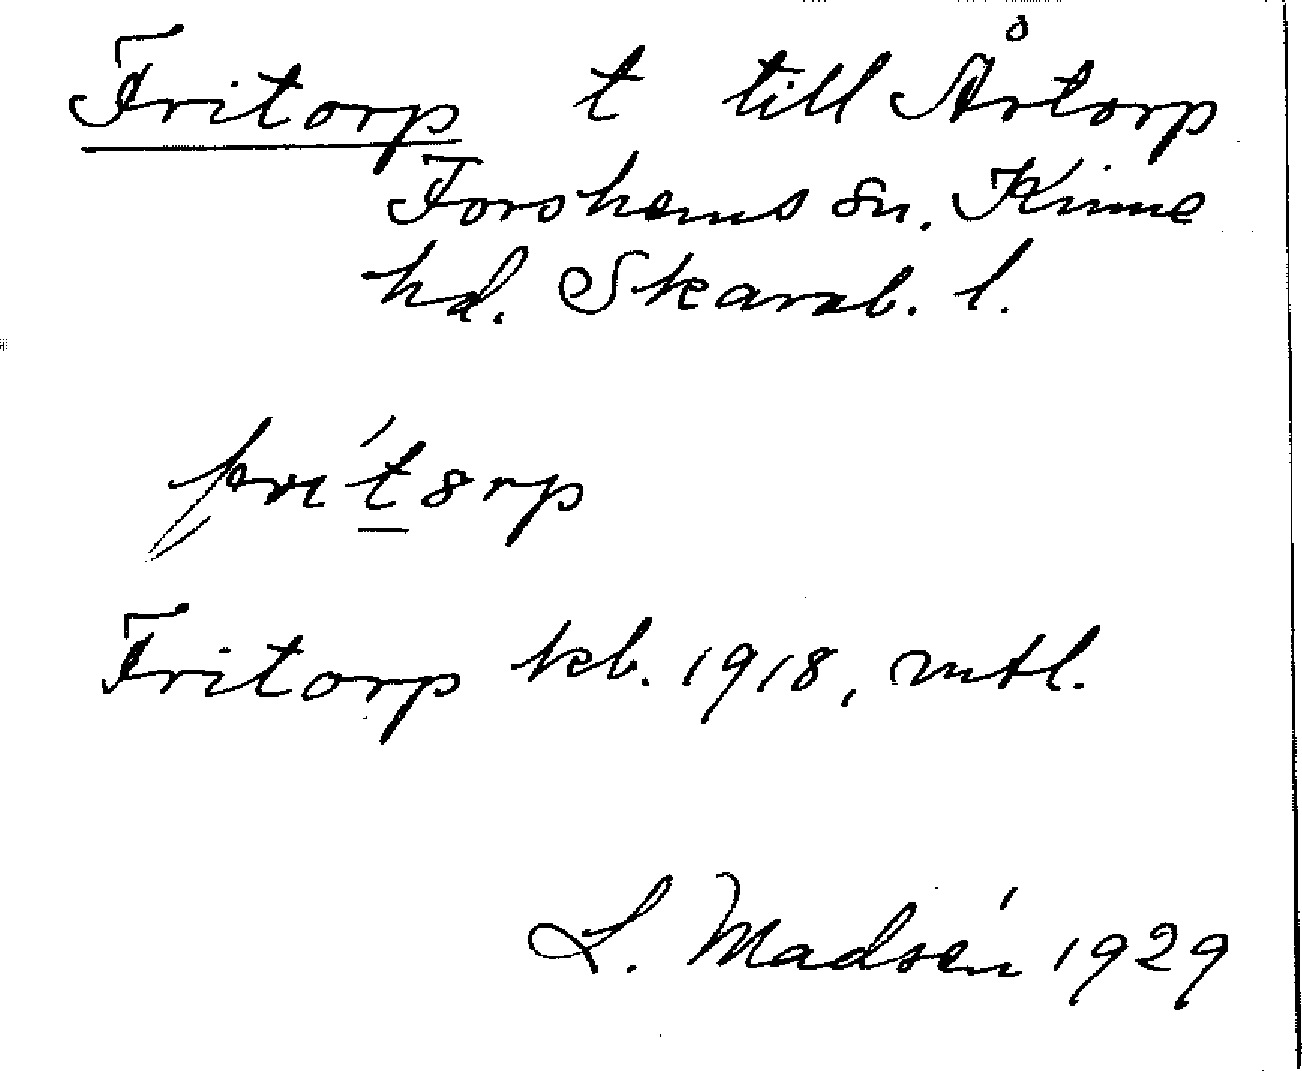 Fritorp t till Årtorp
Forshems sn. Kinne
hd. Skarab. l.
Fritorp kb. 1918, mtl.
L. Madsén 1929